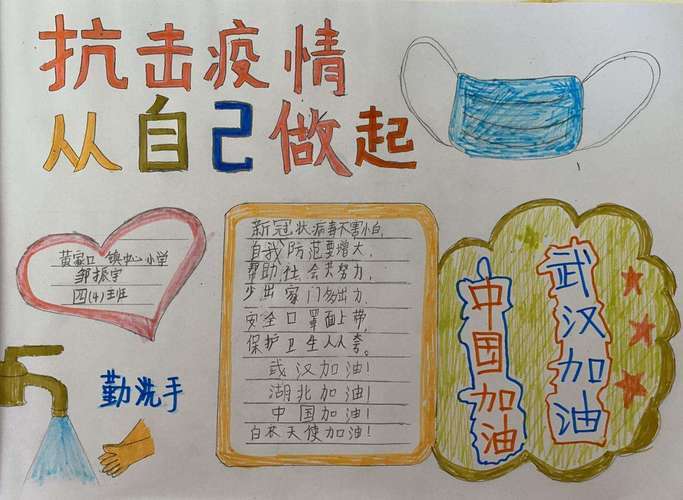 抗击疫情
从自己做起
黄家口镇中心小学
邹振宇
四(4)班
勤洗手
新冠状病毒不害怕,
自我防范要增大,
帮助社会共努力,
少出家门多出力,
安全口罩面上带,
保护卫生人人夸。
武汉加油!
湖北加油!
中国加油!
白衣天使加油!
中国加油
武汉加油